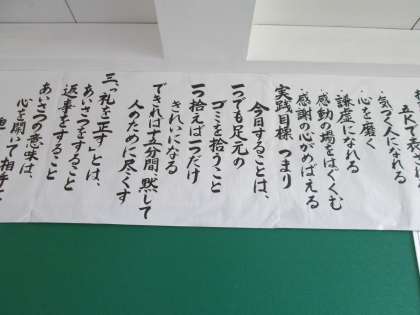 ・気づく人になれる
・心を磨く
・謙虚になれる
・感動の場をはぐくむ
・感謝の心がめばえる
実践目標 つまり
今日することは、
一つでも足元の
ゴミを拾うこと
一つ拾えば一つだけ
きれいになる
できれば十五分間、黙して
人のために尽くす
三、「礼を正す」とは、
あいさつをすること
返事をすること
あいさつの意味は、
心を開いて相手